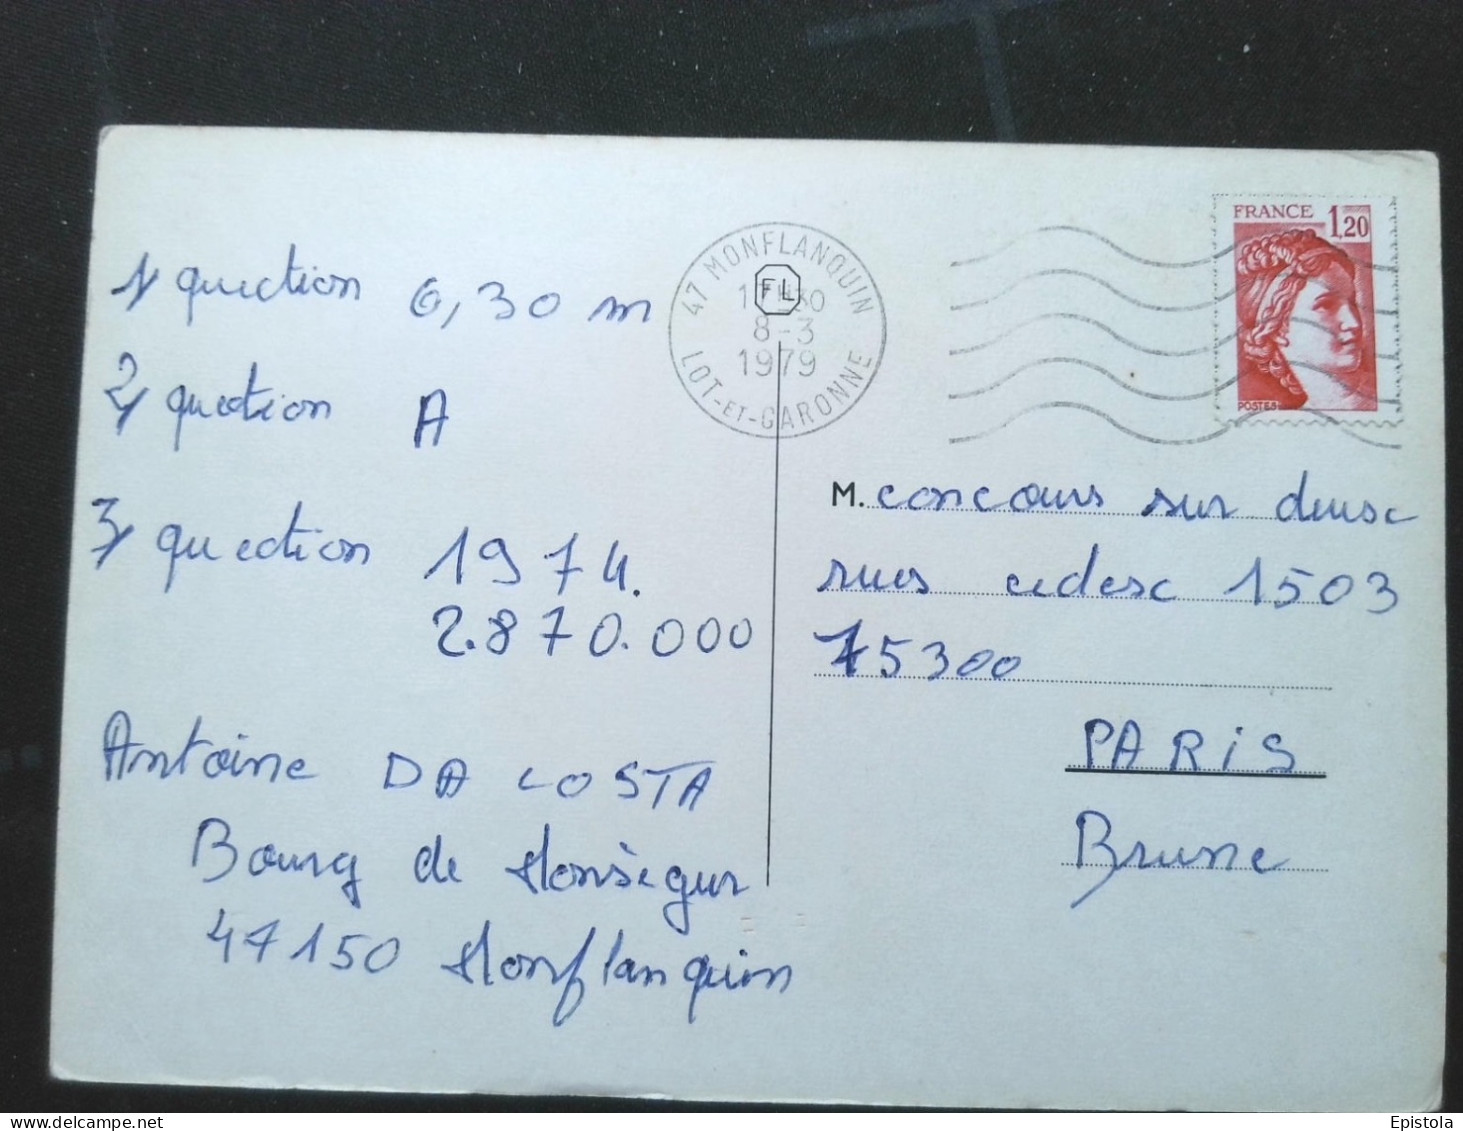 1/ question 6,30 m
2/ question A
3/ question 1974.
2.870.000
Antoine DA COSTA
Bourg de Monségur
47150 Monflanquin
47 MONFLANQUIN
FL
8-3
1979
LOT-ET-GARONNE
FRANCE 1,20
POSTES
M. concours sur deusc
rues cedesc 1503
75300
PARIS
Brune
Epistola